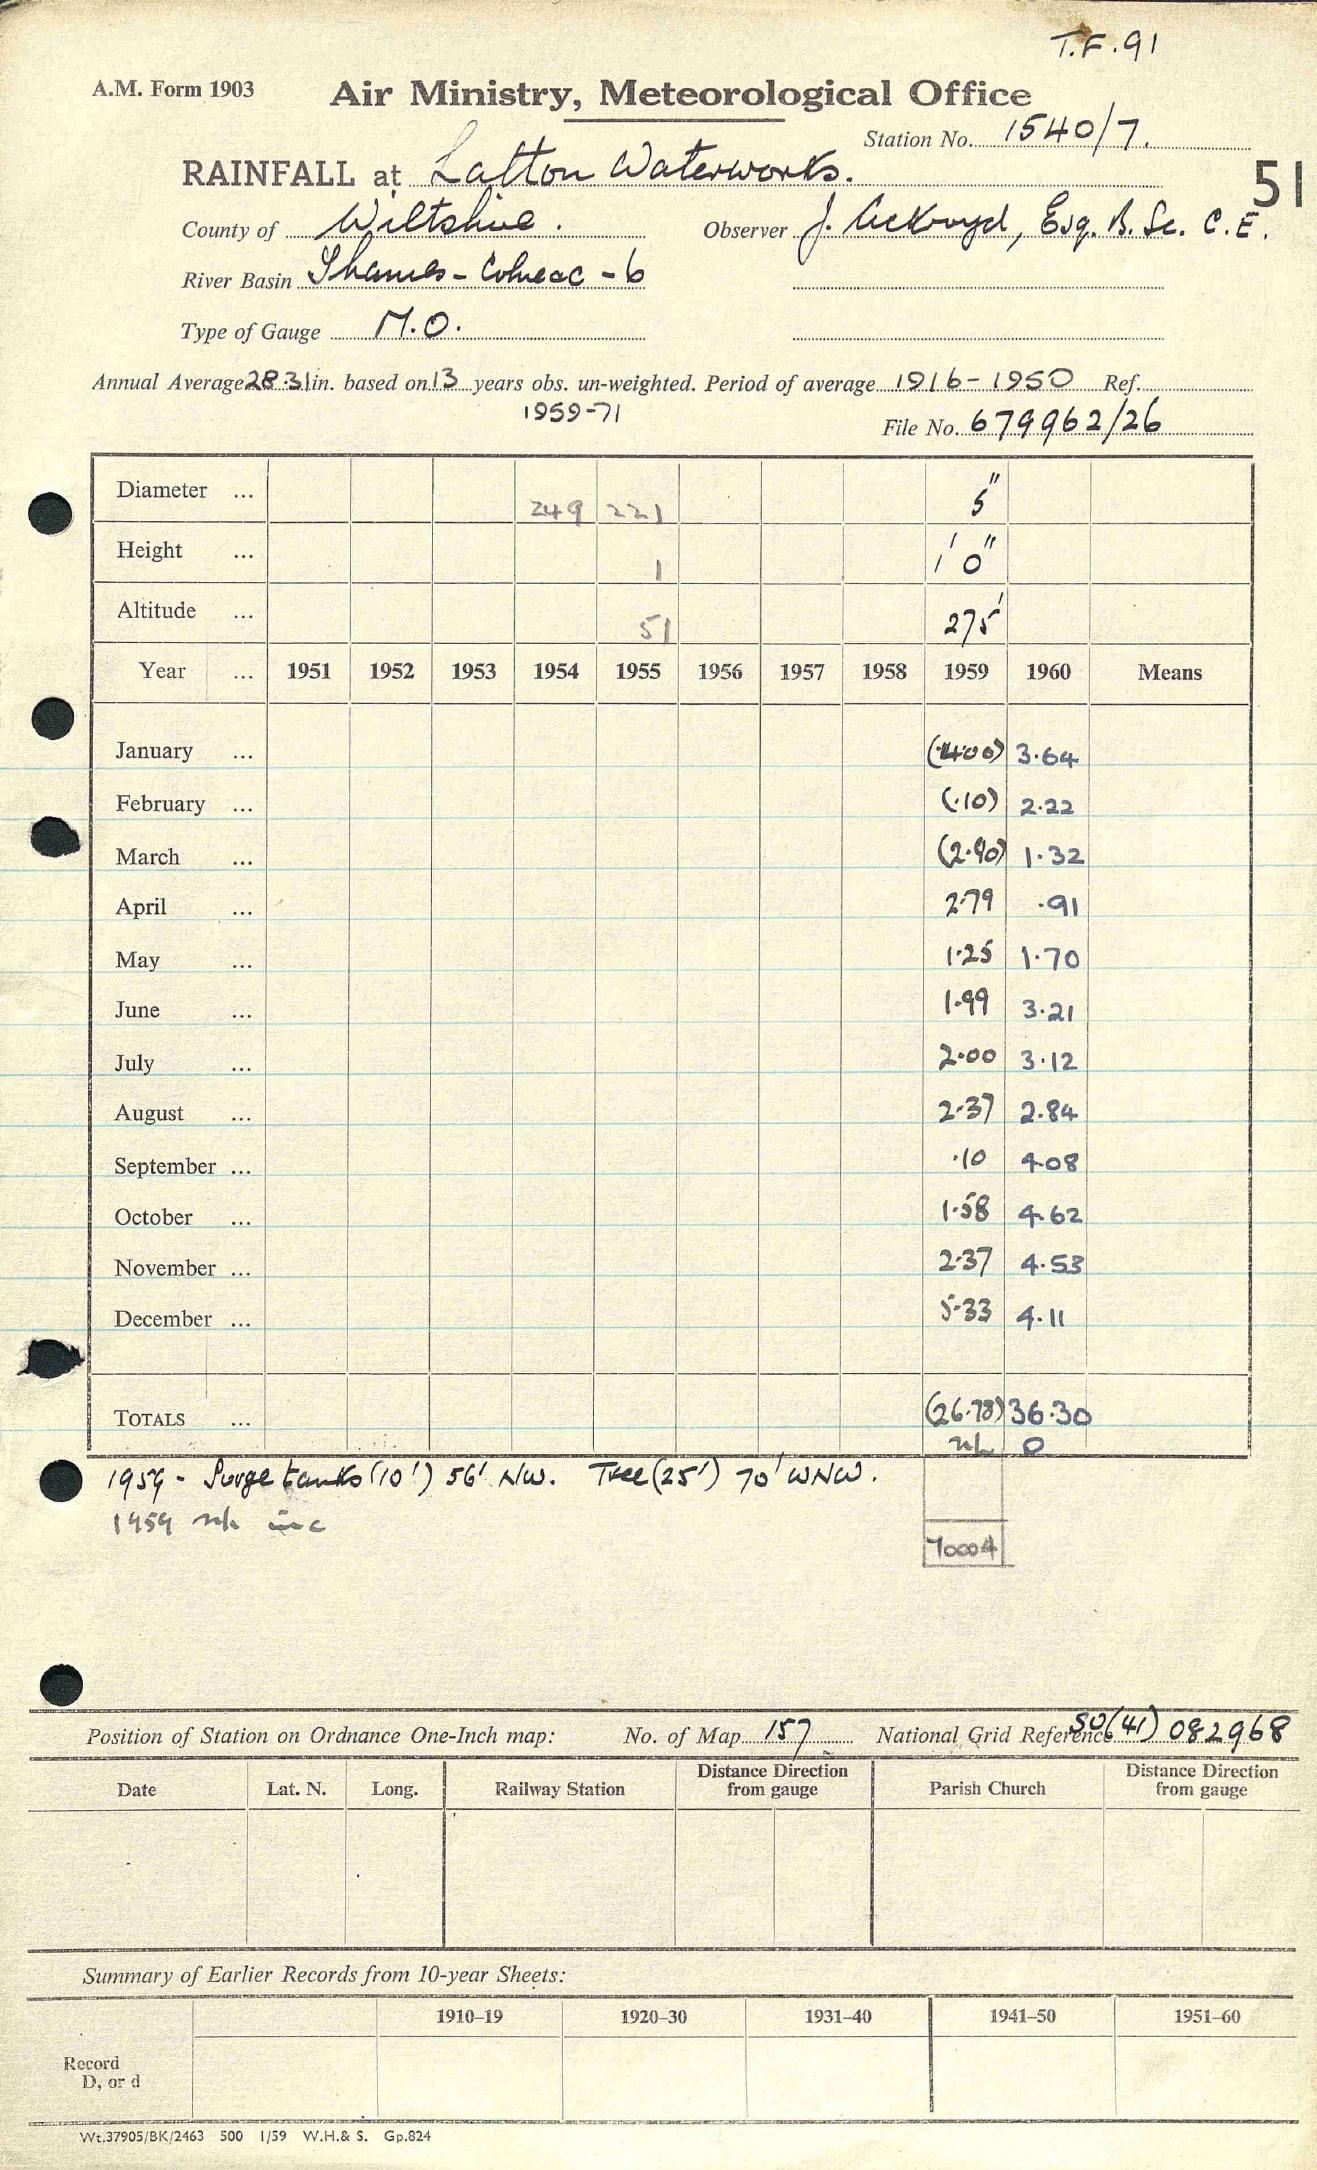 T.F.91
A.M. Form 1903 Air Ministry, Meteorological Office
Station No. 1540/7.
RAINFALL at Latton Waterworks. 51
County of Wiltshire. Observer J. Ackroyd, Esq. B.Sc. C.E.
River Basin Thames - - 6
Type of Gauge M.O.
Annual Average 28.31 in. based on 13 years obs. un-weighted. Period of average 1916-1950 Ref.
1959-71
File No. 679962/26
Diameter ... 249 221 5"
Height ... 1 1' 0"
Altitude ... 51 275'
Year ... 1951 1952 1953 1954 1955 1956 1957 1958 1959 1960 Means
January ... 3.64
February ... (.10) 2.22
March ... (2.90) 1.32
April ... 2.79 .91
May ... 1.25 1.70
June ... 1.99 3.21
July ... 2.00 3.12
August ... 2.37 2.84
September ... .10 4.08
October ... 1.58 4.62
November ... 2.37 4.53
December ... 5.33 4.11
TOTALS ... (26.78) 36.30
0
1959 - Surge tanks (10') 56' NW. Tree (25') 70' WNW.
1959 inc
70004
Position of Station on Ordnance One-Inch map: No. of Map 157 National Grid Reference SU(41) 082968
Date Lat. N. Long. Railway Station Distance Direction from gauge Parish Church Distance Direction from gauge
Summary of Earlier Records from 10-year Sheets:
1910–19 1920–30 1931–40 1941–50 1951–60
Record
D, or d
Wt.37905/BK/2463 500 1/59 W.H.& S. Gp.824